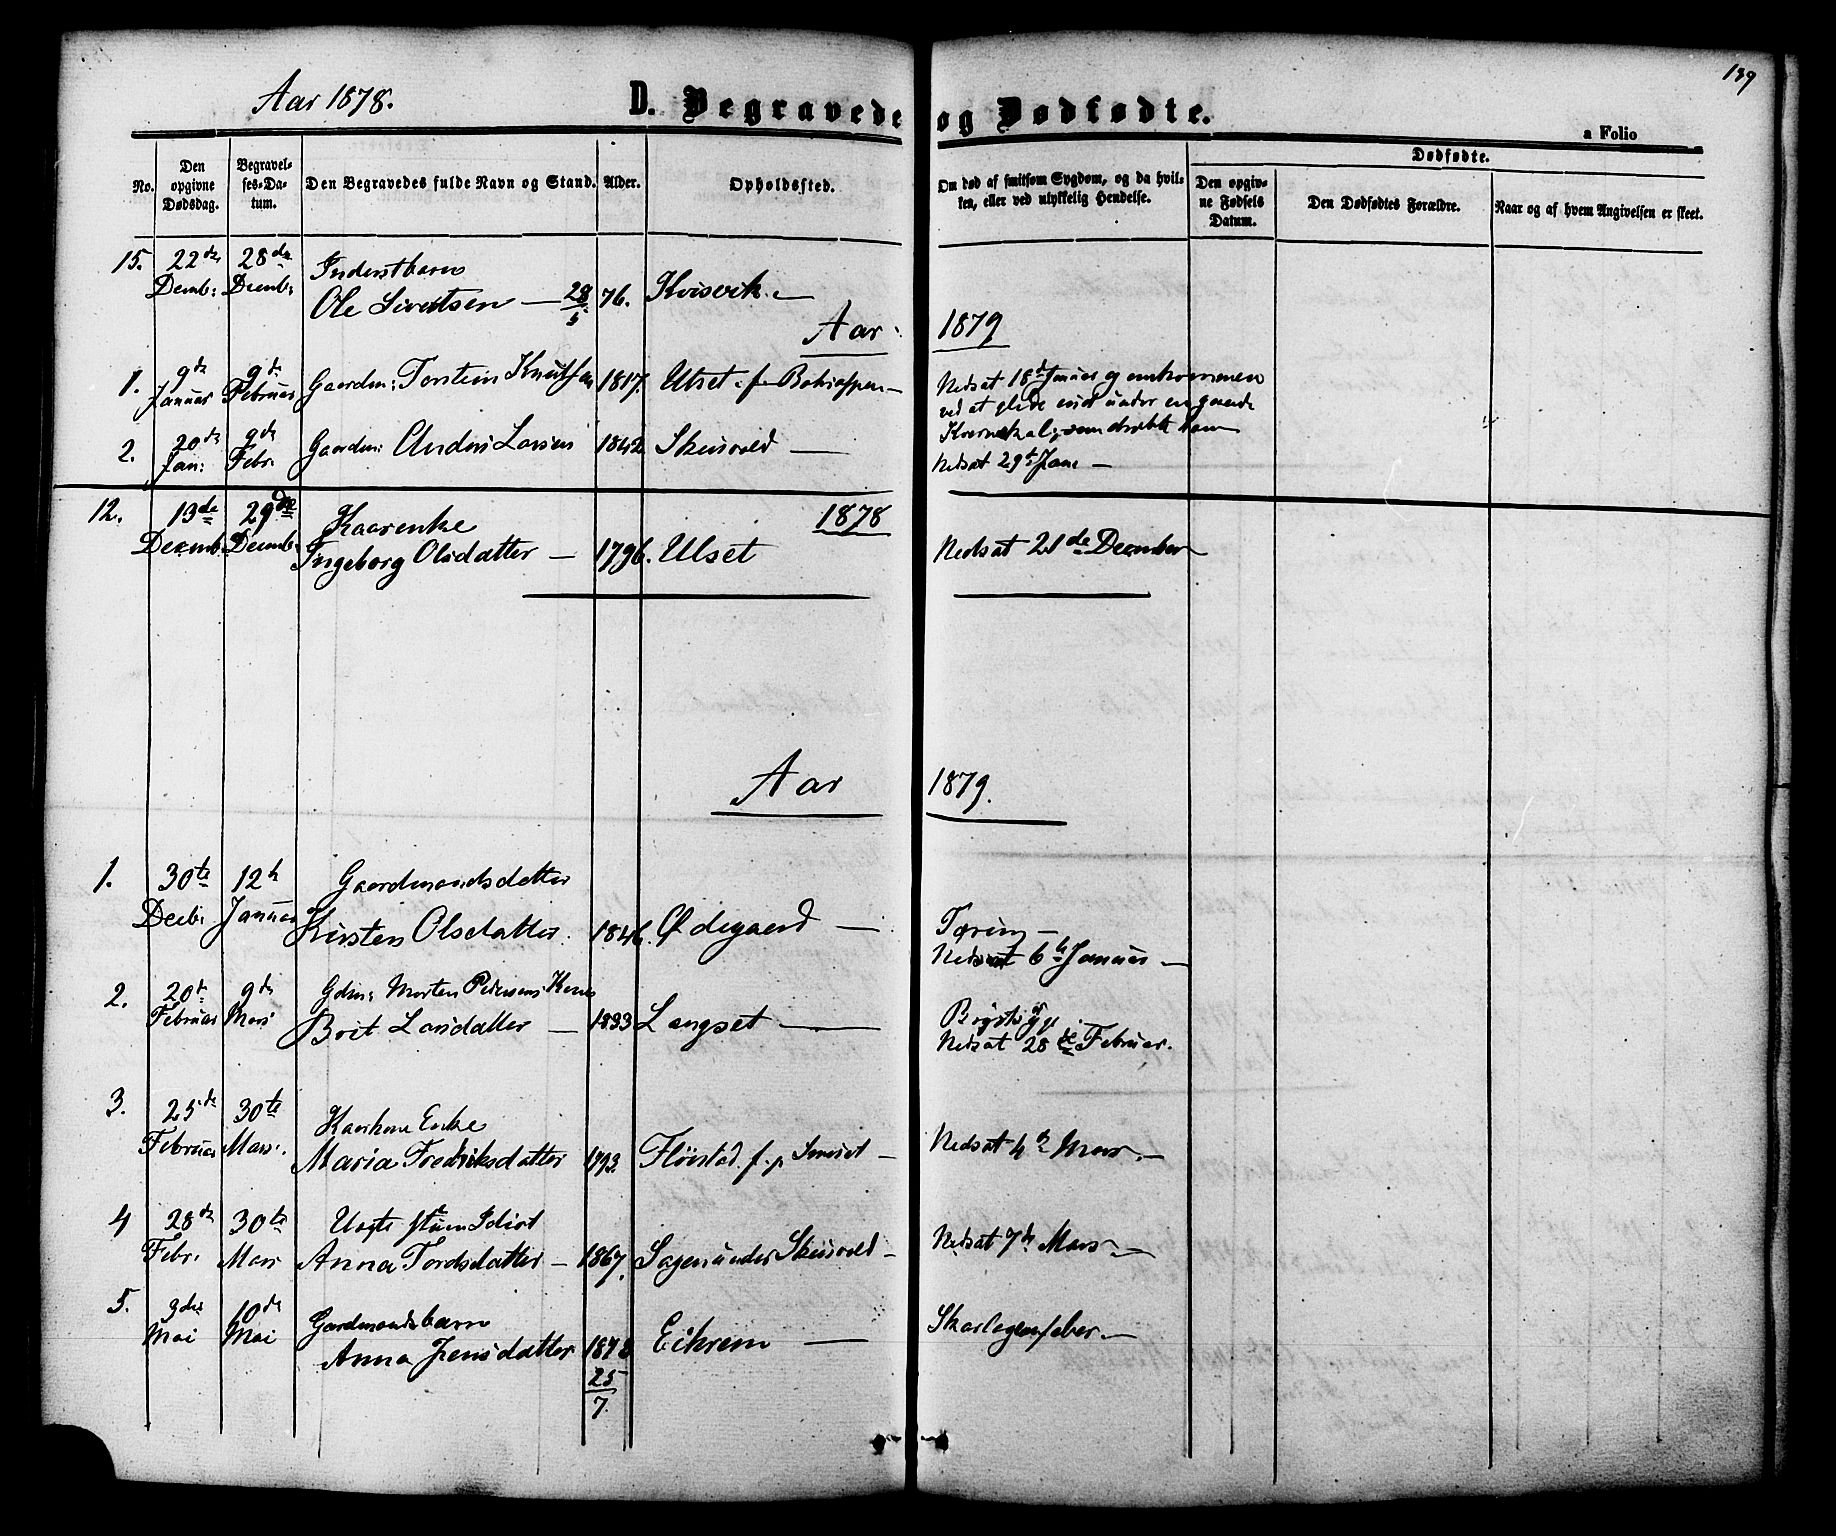 139
Aar 1878.
D. Begravede og Dødfødte.
a Folio
No.
Den opgivne Dødsdag.
Begravelses-Datum.
Den Begravedes fulde Navn og Stand.
Alder.
Opholdssted.
Om død af smitsom Sygdom, og da hvilken, eller ved ulykkelig Hendelse.
Dødfødte.
Den opgivne Fødsels Datum.
Den Dødfødtes Forældre.
Naar og af hvem Angivelsen er skeet.
15. 22de 28de Inderstbarn
Decmb: Decmb: Ole Sivertsen — 28/5 76. Kvisvik. —
Aar 1879
1. 9de 9de Gaardm: Torstein Knutsen 1817. Ulset f. Nedsat 18de Januar og omkommen
Januar Februar ved at glide ind under en gaaende
2. 20de 9de Gaardm: Anders Larsen 1842 Skeisvold — Kvernekal, som drabte ham
Jan: Febr. Nedsat 29de Jan —
12. 13de 29de Kaarenke 1878
Decmb: Decmb: Ingeborg Olsdatter — 1796. Ulset Nedsat 21de December
Aar 1879.
1. 30te 12te Gaardmandsdatter
Decb: Januar Kirsten Olsdatter. 1846. Ødegaard — Tæring —
Nedsat 6te Januar —
2. 20de 9de Gdm: Morten Pedersens Kone
Februar Mars Brit Larsdatter — 1833 Langset — Brystsyge.
Nedsat 28de Februar.
3. 25de 30te Kaarkone Enke
Februar Mars. Maria Fredriksdatter 1793 Flørstad. f. p. — Nedsat 4de Mars. —
4 28de 30te Ugifte stum Idiot
Febr. Mars Anna Tordsdatter — 1867. Sagen under Skeisvold — Nedsat 7de Mars —
5. 3die 10de Gaardmandsbarn
Mai Mai Anna Jensdatter 1878 Eikrem — Skarlagensfeber. —
25/7.